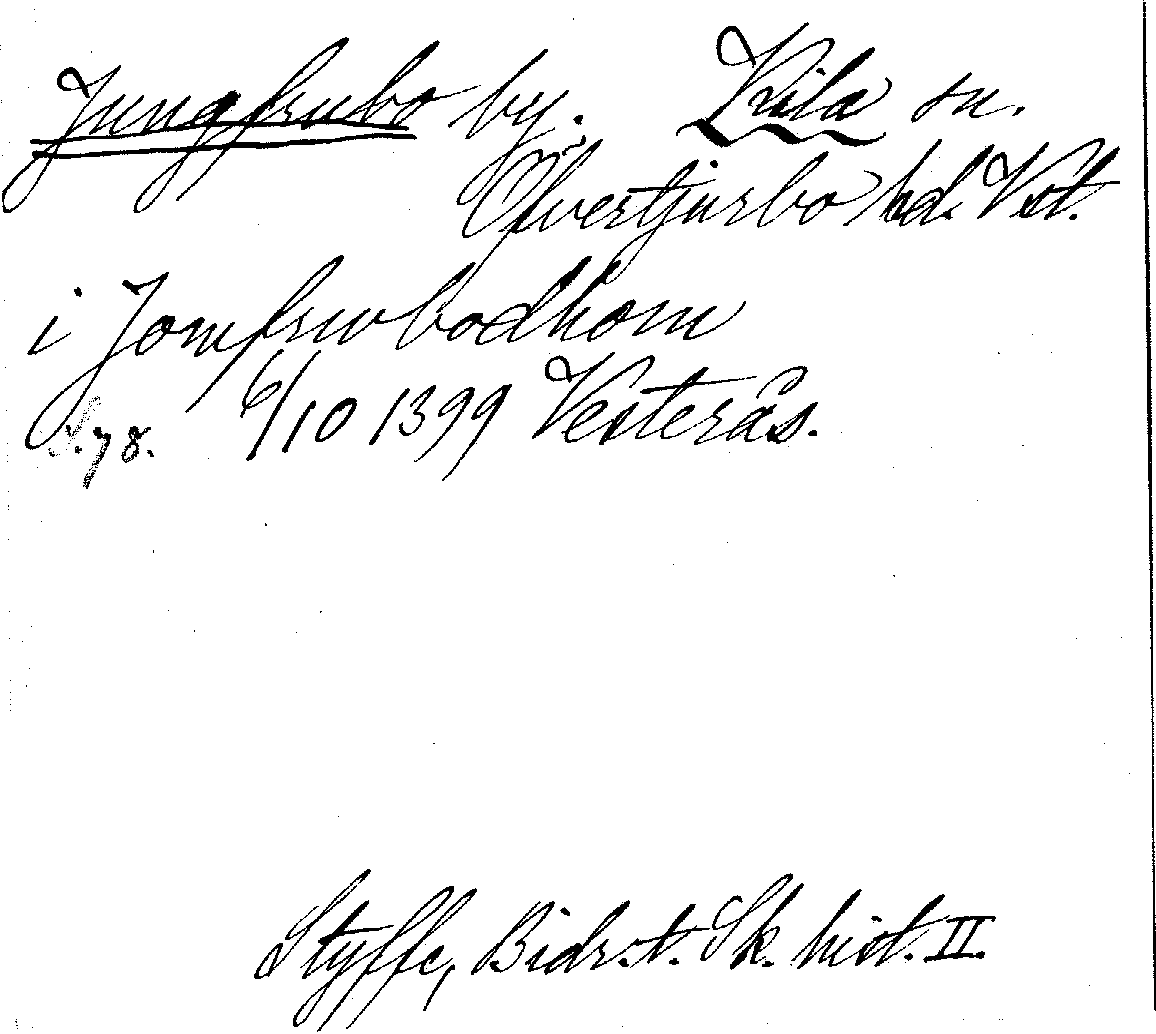 Jungfrubo by. Kila sn.
Öfvertjurbo hd. Vst.
i Jomfrwbodhom
S. 78. 6/10 1399 Vesterås.
Styffe, Bidr. t. Sk. hist. II.